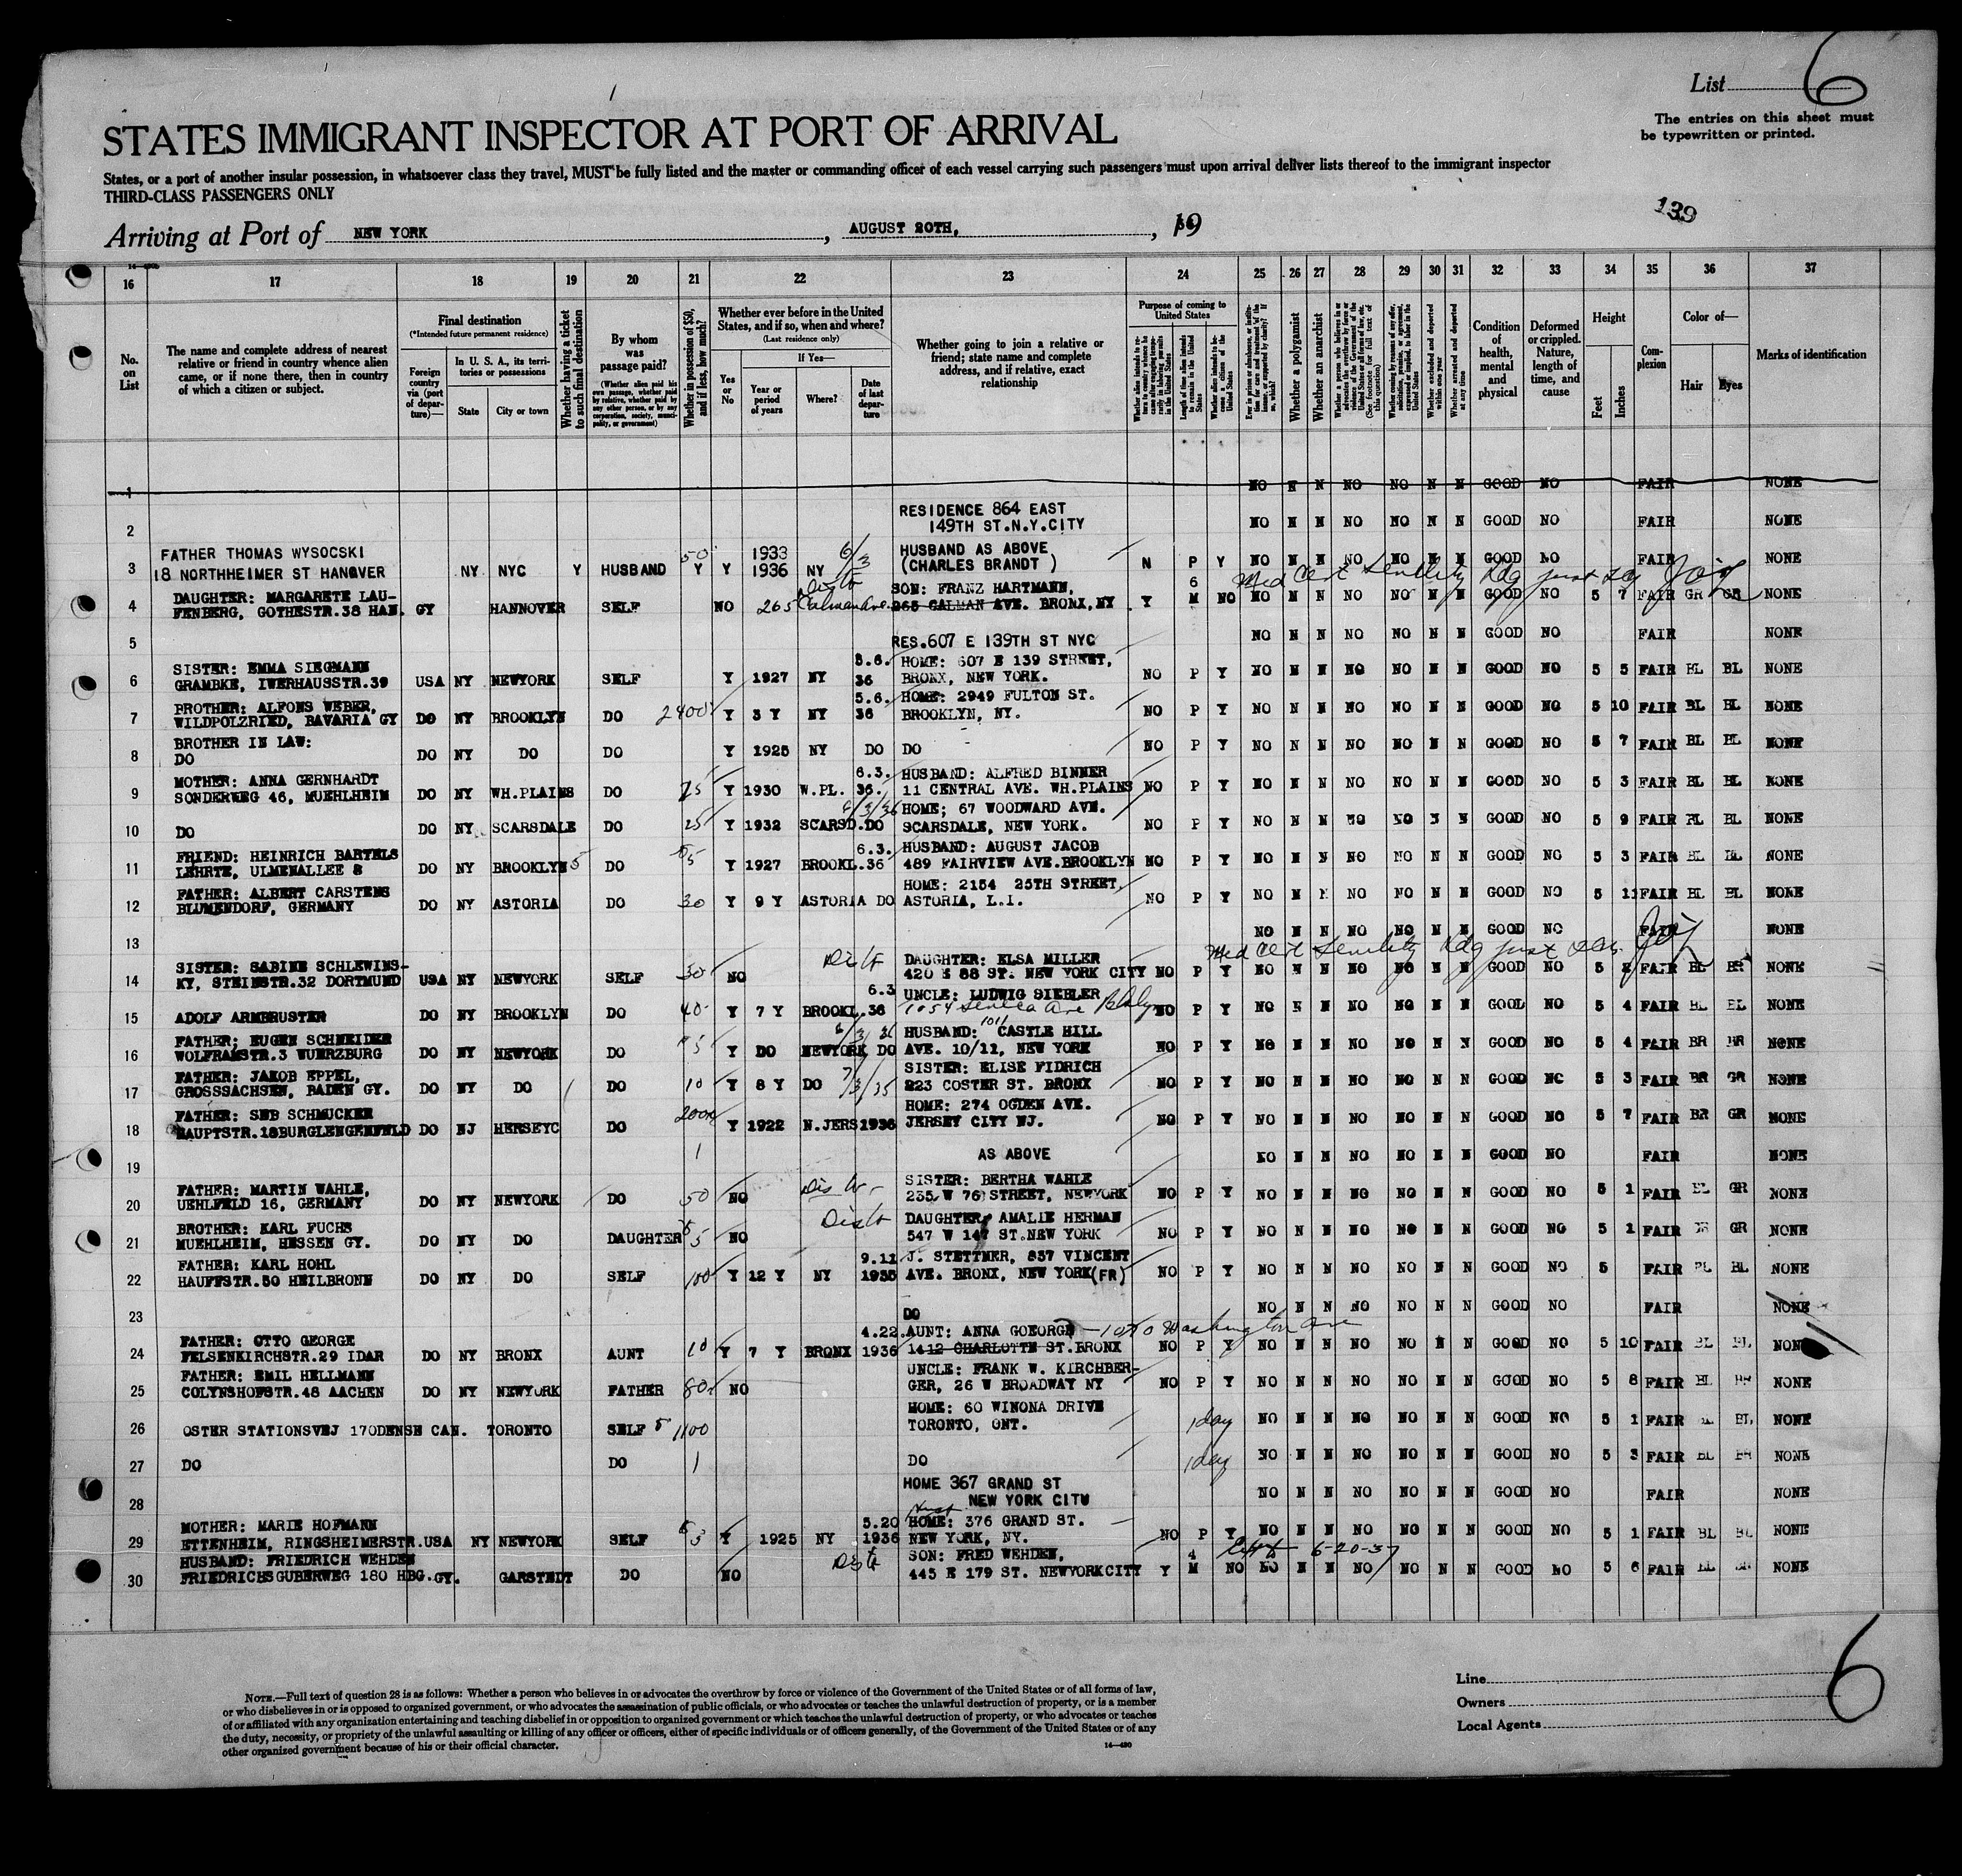 List 6
The entries on this sheet must
be typewritten or printed.
STATES IMMIGRANT INSPECTOR AT PORT OF ARRIVAL
States, or a port of another insular possession, in whatsoever class they travel, MUST be fully listed and the master or commanding officer of each vessel carrying such passengers must upon arrival deliver lists thereof to the immigrant inspector
THIRD-CLASS PASSENGERS ONLY
139
Arriving at Port of NEW YORK, AUGUST 20TH, 19
16 17 18 19 20 21 22 23 24 25 26 27 28 29 30 31 32 33 34 35 36 37
No. on List
The name and complete address of nearest relative or friend in country whence alien came, or if none there, then in country of which a citizen or subject.
Final destination
(*Intended future permanent residence)
Foreign country via (port of departure)—
In U. S. A., its territories or possessions
State
City or town
Whether having a ticket to such final destination
By whom was passage paid?
(Whether alien paid his own passage, whether paid by relative, whether paid by any other person, or by any corporation, society, municipality, or government)
Whether in possession of $50, and if less, how much?
Whether ever before in the United States, and if so, when and where?
(Last residence only)
Yes or No
If Yes—
Year or period of years
Where?
Date of last departure
Whether going to join a relative or friend; state name and complete address, and if relative, exact relationship
Purpose of coming to United States
Whether a polygamist
Whether an anarchist
Whether excluded and deported within one year
Whether arrested and deported at any time
Condition of health, mental and physical
Deformed or crippled. Nature, length of time, and cause
Height
Feet
Inches
Complexion
Color of—
Hair
Eyes
Marks of identification
1 NO N N NO NO N N GOOD NO FAIR NONE
RESIDENCE 864 EAST
2 149TH ST.N.Y.CITY NO N N NO NO N N GOOD NO FAIR NONE
FATHER THOMAS WYSOCSKI 50 1933 6/3 HUSBAND AS ABOVE
3 18 NORTHHEIMER ST HANOVER NY NYC Y HUSBAND Y Y 1936 NY (CHARLES BRANDT ) N P Y NO N N NO NO N N GOOD NO FAIR NONE
Med Cert Senility
DAUGHTER: MARGARETE LAU- SON: FRANZ HARTMANN, 6
4 FENBERG, GOTHESTR.38 HAN. GY HANNOVER SELF NO 265 Calman Ave. 265 CALMAN AVE. BRONX,NY Y M NO NO N N NO NO N N GOOD NO 5 7 FAIR GR GR NONE
5 RES.607 E 139TH ST NYC NO N N NO NO N N GOOD NO FAIR NONE
SISTER: EMMA SIEGMANN HOME: 607 E 139 STREET,
6 GRAMBKE, IWERHAUSSTR.39 USA NY NEWYORK SELF Y 1927 NY 36 BRONX, NEW YORK. NO P Y NO N N NO NO N N GOOD NO 5 5 FAIR BL BL NONE
BROTHER: ALFONS WEBER, 5.6. HOME: 2949 FULTON ST.
7 WILDPOLZRIED, BAVARIA GY DO NY BROOKLYN DO 2400 Y 3 Y NY 36 BROOKLYN, NY. NO P Y NO N N NO NO N N GOOD NO 5 10 FAIR BL BL NONE
BROTHER IN LAW:
8 DO DO NY DO DO Y 1925 NY DO DO NO P Y NO N N NO NO N N GOOD NO 5 7 FAIR BL BL NONE
MOTHER: ANNA GERNHARDT 6.3. HUSBAND: ALFRED BINNER
9 SONDERWEG 46, MUEHLHEIM DO NY WH.PLAINS DO 75 Y 1930 W.PL. 36. 11 CENTRAL AVE. WH.PLAINS NO P Y NO N N NO NO N N GOOD NO 5 3 FAIR BL BL NONE
6/3/36 HOME; 67 WOODWARD AVE.
10 DO DO NY SCARSDALE DO 25 Y 1932 SCARSD.DO SCARSDALE, NEW YORK. NO P Y NO N N NO NO N N GOOD NO 5 9 FAIR BL BL NONE
FRIEND: HEINRICH BARTELS 6.3. HUSBAND: AUGUST JACOB
11 LEHRTE, ULMENALLEE 8 DO NY BROOKLYN DO Y 1927 BROOKL.36 489 FAIRVIEW AVE.BROOKLYN NO P Y NO N N NO NO N N GOOD NO 5 3 FAIR BL BL NONE
FATHER: ALBERT CARSTENS HOME: 2154 25TH STREET,
12 BLUMENDORF, GERMANY DO NY ASTORIA DO 30 Y 9 Y ASTORIA DO ASTORIA, L.I. NO P Y NO N N NO NO N N GOOD NO 5 11 FAIR BL BL NONE
13 NO N N NO NO N N GOOD NO FAIR NONE
Med Cert Senility
SISTER: SABINE SCHLEWINS- DAUGHTER: ELSA MILLER
14 KY, STEINSTR.32 DORTMUND USA NY NEWYORK SELF 30 NO 420 E 88 ST. NEW YORK CITY NO P Y NO N N NO NO N N GOOD NO 5 FAIR BL BR NONE
6.3 UNCLE: LUDWIG SIEBLER
15 ADOLF ARMBRUSTER DO NY BROOKLYN DO 40 Y 7 Y BROOKL.36 1054 Seneca Ave Bklyn NO P Y NO N N NO NO N N GOOD NO 5 4 FAIR BL BL NONE
FATHER: EUGEN SCHNEIDER 6/3/36 HUSBAND: 1011 CASTLE HILL
16 WOLFRAMSTR.3 WUERZBURG DO NY NEWYORK DO Y DO NEWYORK DO AVE. 10/11, NEW YORK NO P Y NO N N NO NO N N GOOD NO 5 4 FAIR BR BR NONE
FATHER: JAKOB EPPEL, SISTER: ELISE FIDRICH
17 GROSSSACHSEN, BADEN GY. DO NY DO DO 10 Y 8 Y DO 7/3/35 223 COSTER ST. BRONX NO P Y NO N N NO NO N N GOOD NO 5 3 FAIR BR GR NONE
FATHER: SEB SCHMUCKER 2000 HOME: 274 OGDEN AVE.
18 HAUPTSTR.18BURGLENGENFELD DO NJ HERSEYC DO Y 1922 N.JERS1936 JERSEY CITY NJ. NO P Y NO N N NO NO N N GOOD NO 5 7 FAIR BR GR NONE
19 1 AS ABOVE NO N N NO NO N N GOOD NO FAIR NONE
FATHER: MARTIN WAHLE, SISTER: BERTHA WAHLE
20 UEHLFELD 16, GERMANY DO NY NEWYORK DO 50 NO 235 W 76 STREET, NEWYORK NO P Y NO N N NO NO N N GOOD NO 5 1 FAIR BL GR NONE
BROTHER: KARL FUCHS DAUGHTER: AMALIE HERMAN
21 MUEHLHEIM, HESSEN GY. DO NY DO DAUGHTER NO 547 W 147 ST.NEW YORK NO P Y NO N N NO NO N N GOOD NO 5 1 FAIR GR NONE
FATHER: KARL HOHL 9.11 J. STETTNER, 837 VINCENT
22 HAUFFSTR.50 HEILBRONN DO NY DO SELF 100 Y 12 Y NY 1935 AVE. BRONX, NEW YORK(FR) NO P Y NO N N NO NO N N GOOD NO 5 FAIR BL BL NONE
23 DO NO N N NO NO N N GOOD NO FAIR NONE
FATHER: OTTO GEORGE 4.22. AUNT: ANNA GOEORGE — 1070 Washington Ave
24 FELSENKIRCHSTR.29 IDAR DO NY BRONX AUNT 10 Y 7 Y BRONX 1936 1412 CHARLOTTE ST.BRONX NO P Y NO N N NO NO N N GOOD NO 5 10 FAIR BL BL NON
FATHER: EMIL HELLMANN UNCLE: FRANK W. KIRCHBER-
25 COLYNSHOFSTR.48 AACHEN DO NY NEWYORK FATHER 80 NO GER, 26 W BROADWAY NY NO P Y NO N N NO NO N N GOOD NO 5 8 FAIR BL BR NONE
HOME: 60 WINONA DRIVE
26 OSTER STATIONSVEJ 17ODENSE CAN. TORONTO SELF 1100 TORONTO, ONT. 1 day NO N N NO NO N N GOOD NO 5 1 FAIR BL NONE
27 DO DO 1 DO 1 day NO N N NO NO N N GOOD NO 5 3 FAIR BL BR NONE
HOME 367 GRAND ST
28 NEW YORK CITY NO N N NO NO N N GOOD NO FAIR NONE
MOTHER: MARIE HOFMANN 5.20 HOME: 376 GRAND ST.
29 ETTENHEIM, RINGSHEIMERSTR.USA NY NEWYORK SELF Y 1925 NY 1936 NEW YORK, NY. NO P Y NO N N NO NO N N GOOD NO 5 1 FAIR BL BL NONE
HUSBAND: FRIEDRICH WEHDEN SON: FRED WEHDEN, 4 6-20-37
30 FRIEDRICHSGUBERWEG 180 HBG.GY. GARSTEDT DO NO 445 E 179 ST. NEWYORKCITY Y M NO NO N N NO NO N N GOOD NO 5 6 FAIR NONE
NOTE.—Full text of question 28 is as follows: Whether a person who believes in or advocates the overthrow by force or violence of the Government of the United States or of all forms of law,
or who disbelieves in or is opposed to organized government, or who advocates the assassination of public officials, or who advocates or teaches the unlawful destruction of property, or is a member
of or affiliated with any organization entertaining and teaching disbelief in or opposition to organized government or which teaches the unlawful destruction of property, or who advocates or teaches
the duty, necessity, or propriety of the unlawful assaulting or killing of any officer or officers, either of specific individuals or of officers generally, of the Government of the United States or of any
other organized government because of his or their official character.
14—480
Line
Owners
Local Agents
6